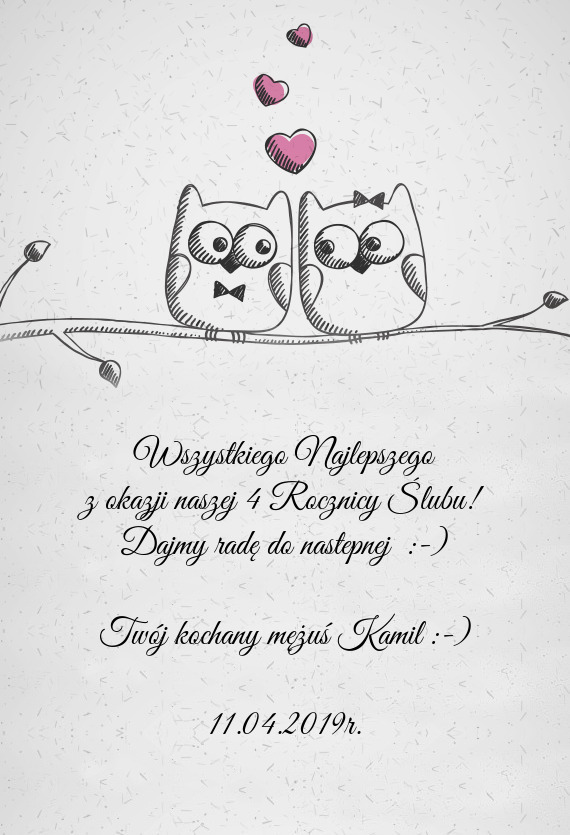 Wszystkiego Najlepszego
z okazji naszej 4 Rocznicy Ślubu!
Dajmy radę do nastepnej :-)
Twój kochany mężuś Kamil :-)
11.04.2019r.